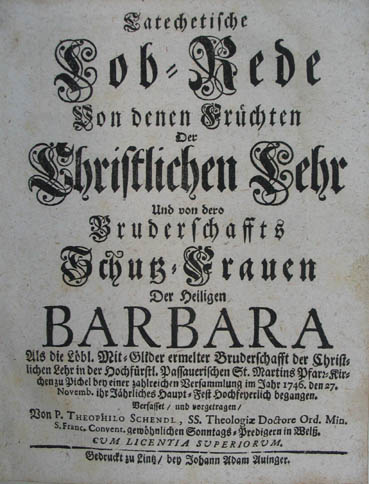 Catechetische
Lob-Rede
Von denen Früchten
Der
Christlichen Lehr
Und von dero
Bruderschaffts
Schutz-Frauen
Der Heiligen
BARBARA
Als die Löbl. Mit-Glider ermelter Bruderschafft der Christ-
lichen Lehr in der Hochfürstl. Passauerischen St. Martins Pfarr-Kir-
chen zu Pichel bey einer zahlreichen Versammlung im Jahr 1746. den 27.
Novemb. ihr Jährliches Haupt-Fest Hochfeyerlich begangen.
Verfasset / und vorgetragen /
Von P. THEOPHILO SCHENDL, SS. Theologiæ Doctore Ord. Min.
S. Franc. Convent. gewöhnlichen Sonntags-Predigern in Welß.
CUM LICENTIA SUPERIORUM.
Gedruckt zu Lintz / bey Johann Adam Auinger.